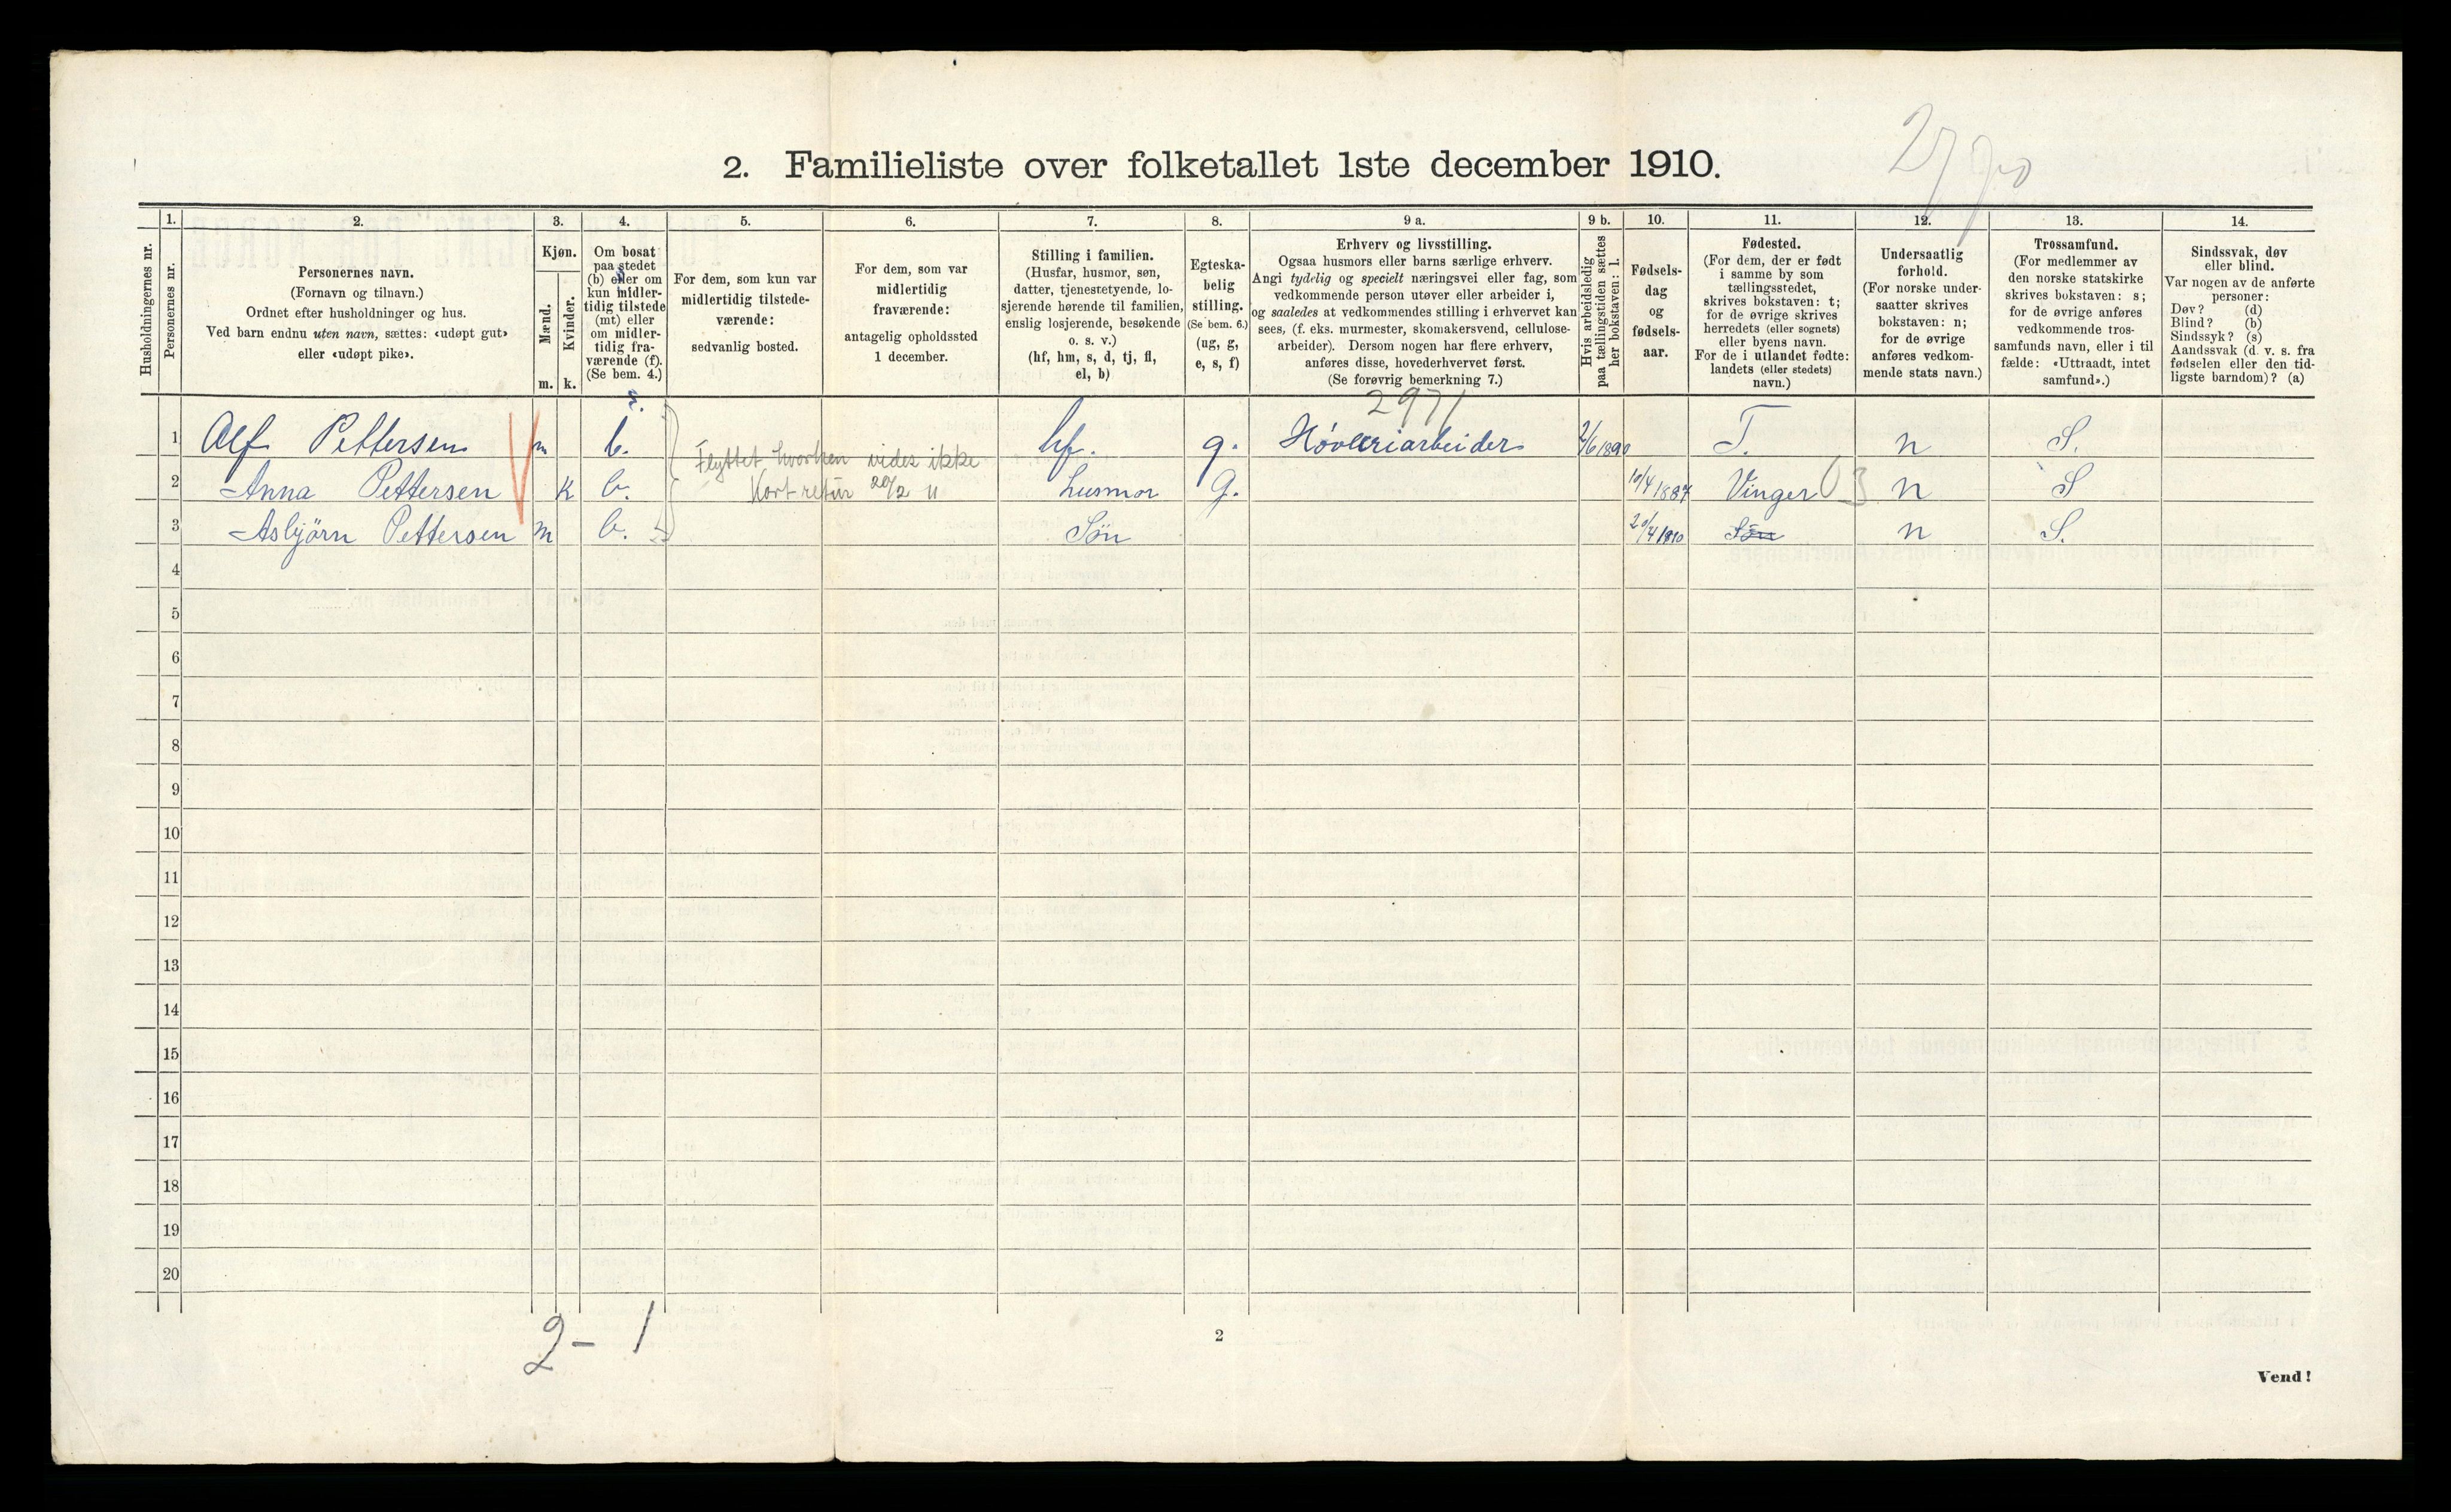 2. Familieliste over folketallet 1ste december 1910.
Husholdningernes nr.
1.
Personernes nr.
2.
Personernes navn.
(Fornavn og tilnavn.)
Ordnet efter husholdninger og hus.
Ved barn endnu uten navn, sættes: «udøpt gut»
eller «udøpt pike».
3.
Kjøn.
Mænd.
Kvinder.
m. k.
4.
Om bosat
paa stedet
(b) eller om
kun midler-
tidig tilstede
(mt) eller
om midler-
tidig fra-
værende (f).
(Se bem. 4.)
5.
For dem, som kun var
midlertidig tilstede-
værende:
sedvanlig bosted.
6.
For dem, som var
midlertidig
fraværende:
antagelig opholdssted
1 december.
7.
Stilling i familien.
(Husfar, husmor, søn,
datter, tjenestetyende, lo-
sjerende hørende til familien,
enslig losjerende, besøkende
o. s. v.)
(hf, hm, s, d, tj, fl,
el, b)
8.
Egteska-
belig
stilling.
(Se bem. 6.)
(ug, g,
e, s, f)
9 a.
Erhverv og livsstilling.
Ogsaa husmors eller barns særlige erhverv.
Angi tydelig og specielt næringsvei eller fag, som
vedkommende person utøver eller arbeider i,
og saaledes at vedkommendes stilling i erhvervet kan
sees, (f. eks. murmester, skomakersvend, cellulose-
arbeider). Dersom nogen har flere erhverv,
anføres disse, hovederhvervet først.
(Se forøvrig bemerkning 7.)
9 b.
Hvis arbeidsledig
paa tællingstiden sættes
her bokstaven: l.
10.
Fødsels-
dag
og
fødsels-
aar.
11.
Fødested.
(For dem, der er født
i samme by som
tællingsstedet,
skrives bokstaven: t;
for de øvrige skrives
herredets (eller sognets)
eller byens navn.
For de i utlandet fødte:
landets (eller stedets)
navn.)
12.
Undersaatlig
forhold.
(For norske under-
saatter skrives
bokstaven: n;
for de øvrige
anføres vedkom-
mende stats navn.)
13.
Trossamfund.
(For medlemmer av
den norske statskirke
skrives bokstaven: s;
for de øvrige anføres
vedkommende tros-
samfunds navn, eller i til
fælde: «Uttraadt, intet
samfund».)
14.
Sindssvak, døv
eller blind.
Var nogen av de anførte
personer:
Døv? (d)
Blind? (b)
Sindssyk? (s)
Aandssvak (d. v. s. fra
fødselen eller den tid-
ligste barndom)? (a)
2971
1 Alf Pettersen m b. hf. g. Høvleriarbeider 2/6 1890 T. n S.
Flyttet hvorhen vides ikke
2 Anna Pettersen k b. husmor g. 10/4 1887 Vinger 03 n S
Kort retur 20/2 11
3 Asbjörn Pettersen m b. Sön 20/4 1910 Sön n S.
4
5
6
7
8
9
10
11
12
13
14
15
16
17
18
19
20
2 - 1
2
Vend!